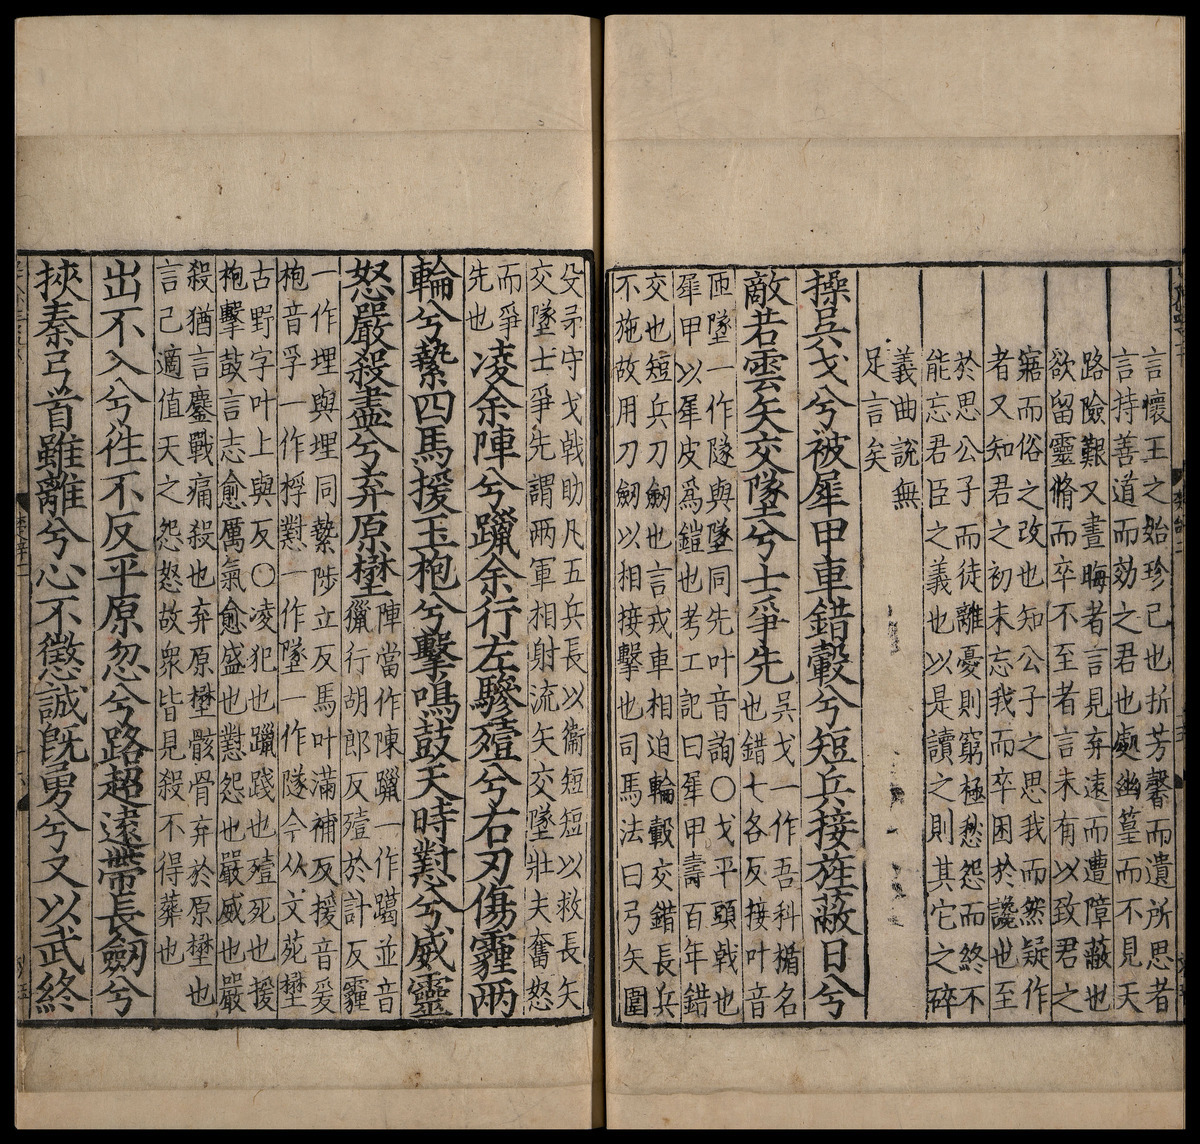 言懷王之始珍己也折芳馨而遺所思者
言持善道而効之君也處幽篁而不見天
路險艱又晝晦者言見弃遠而遭障蔽也
欲留靈脩而卒不至者言未有以致君之
寤而俗之改也知公子之思我而然疑作
者又知君之初未忘我而卒困於讒也至
於思公子而徒離憂則窮極愁怨而終不
能忘君臣之義也以是讀之則其它之碎
義曲說無
足言矣
操吳戈兮被犀甲車錯轂兮短兵接旌蔽日兮
敵若雲矢交墜兮士爭先
吳戈一作吾科楯名
也錯七各反接叶音
匝墜一作隧與墜同先叶音詢〇戈平頭戟也
犀甲以犀皮爲鎧也考工記曰犀甲壽百年錯
交也短兵刀劒也言戎車相迫輪轂交錯長兵
不施故用刀劒以相接擊也司馬法曰弓矢圍
殳矛守戈戟助凡五兵長以衞短短以救長矢
交墜士爭先謂兩軍相射流矢交墜壯夫奮怒
而爭
先也
凌余陣兮躐余行左驂殪兮右刃傷霾兩
輪兮縶四馬援玉枹兮擊鳴鼓天時懟兮威靈
怒嚴殺盡兮弃原壄
陣當作陳躐一作並音
獵行胡郎反殪於計反霾
一作埋與埋同縶陟立反馬叶滿補反援音爰
枹音孚一作桴懟一作墜一作隧今从文苑壄
古野字叶上與反〇凌犯也躐踐也殪死也援
枹擊鼓言志愈厲氣愈盛也懟怨也嚴威也嚴
殺猶言鏖戰痛殺也弃原壄骸骨弃於原壄也
言己適值天之怨怒故衆皆見殺不得葬也
出不入兮往不反平原忽兮路超遠帶長劒兮
挾秦弓首雖離兮心不懲誠旣勇兮又以武終